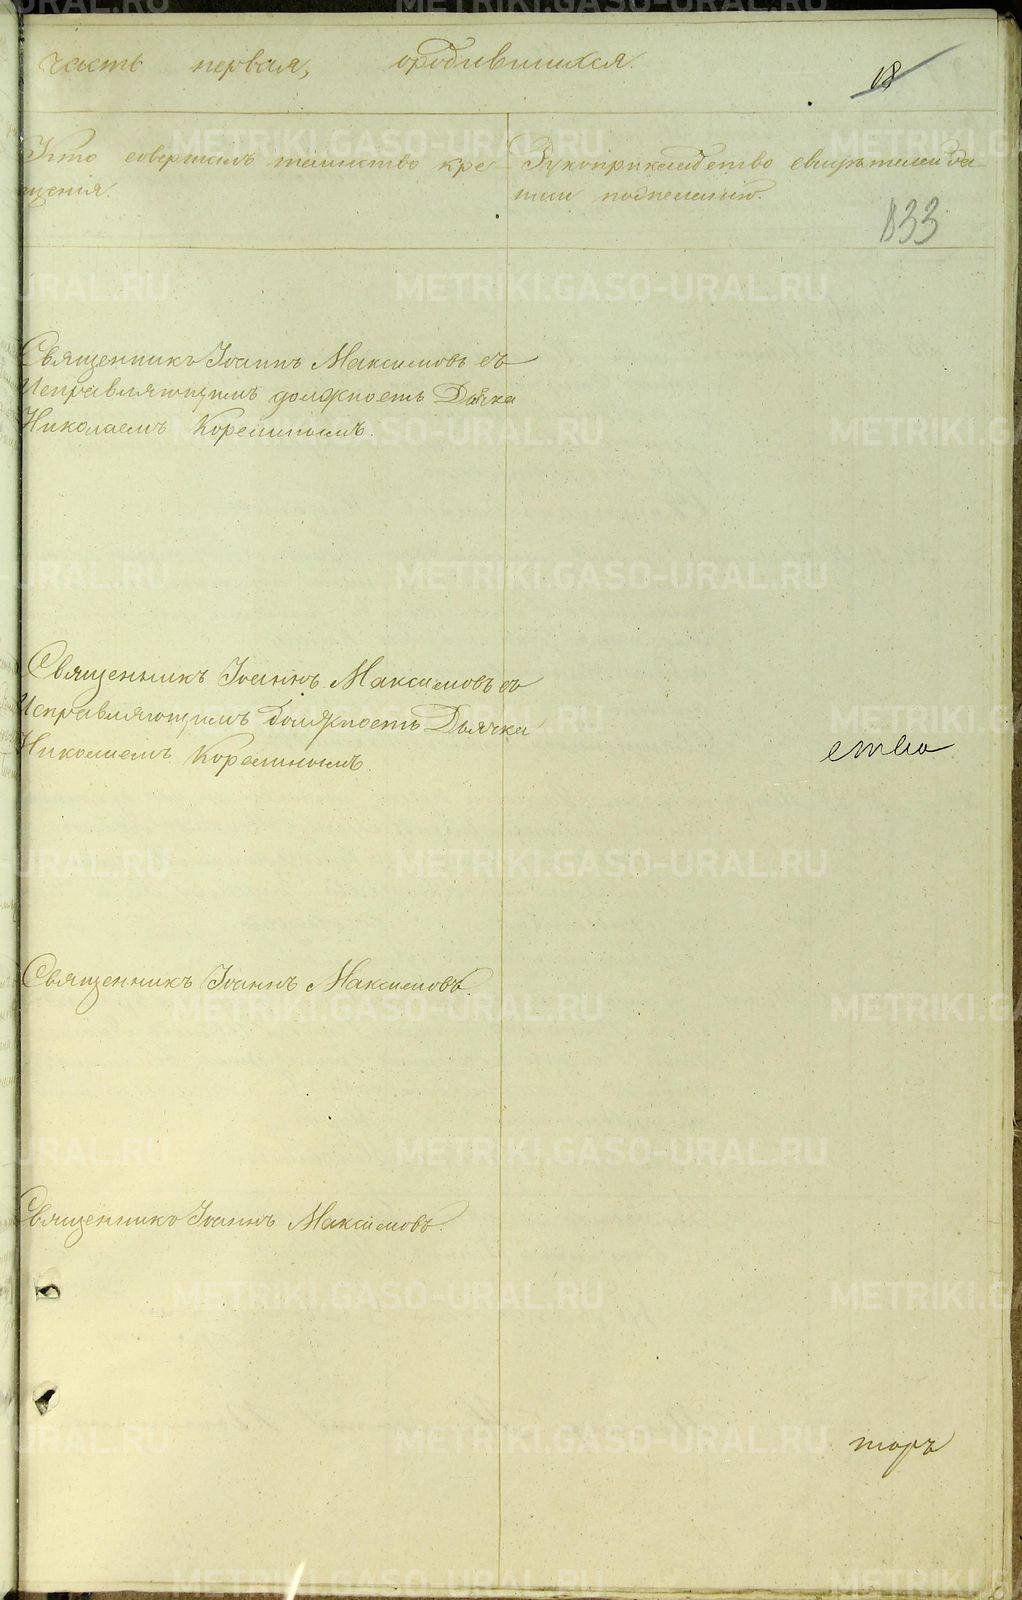 часть первая, ородившихся.
18
Кто совершалъ таинство кре-
щенія.
Рукоприкладство свидѣтелей за-
писи по желанію.
133
Священникъ Іоаннъ Максимовъ съ
Исправляющимъ должность Дьячка
Николаемъ Корелинымъ.
Священникъ Іоаннъ Максимовъ съ
Исправляющимъ должность Дьячка
Николаемъ Корелинымъ.
ство
Священникъ Іоаннъ Максимовъ.
Священникъ Іоаннъ Максимовъ.
торъ
METRIKI.GASO-URAL.RU